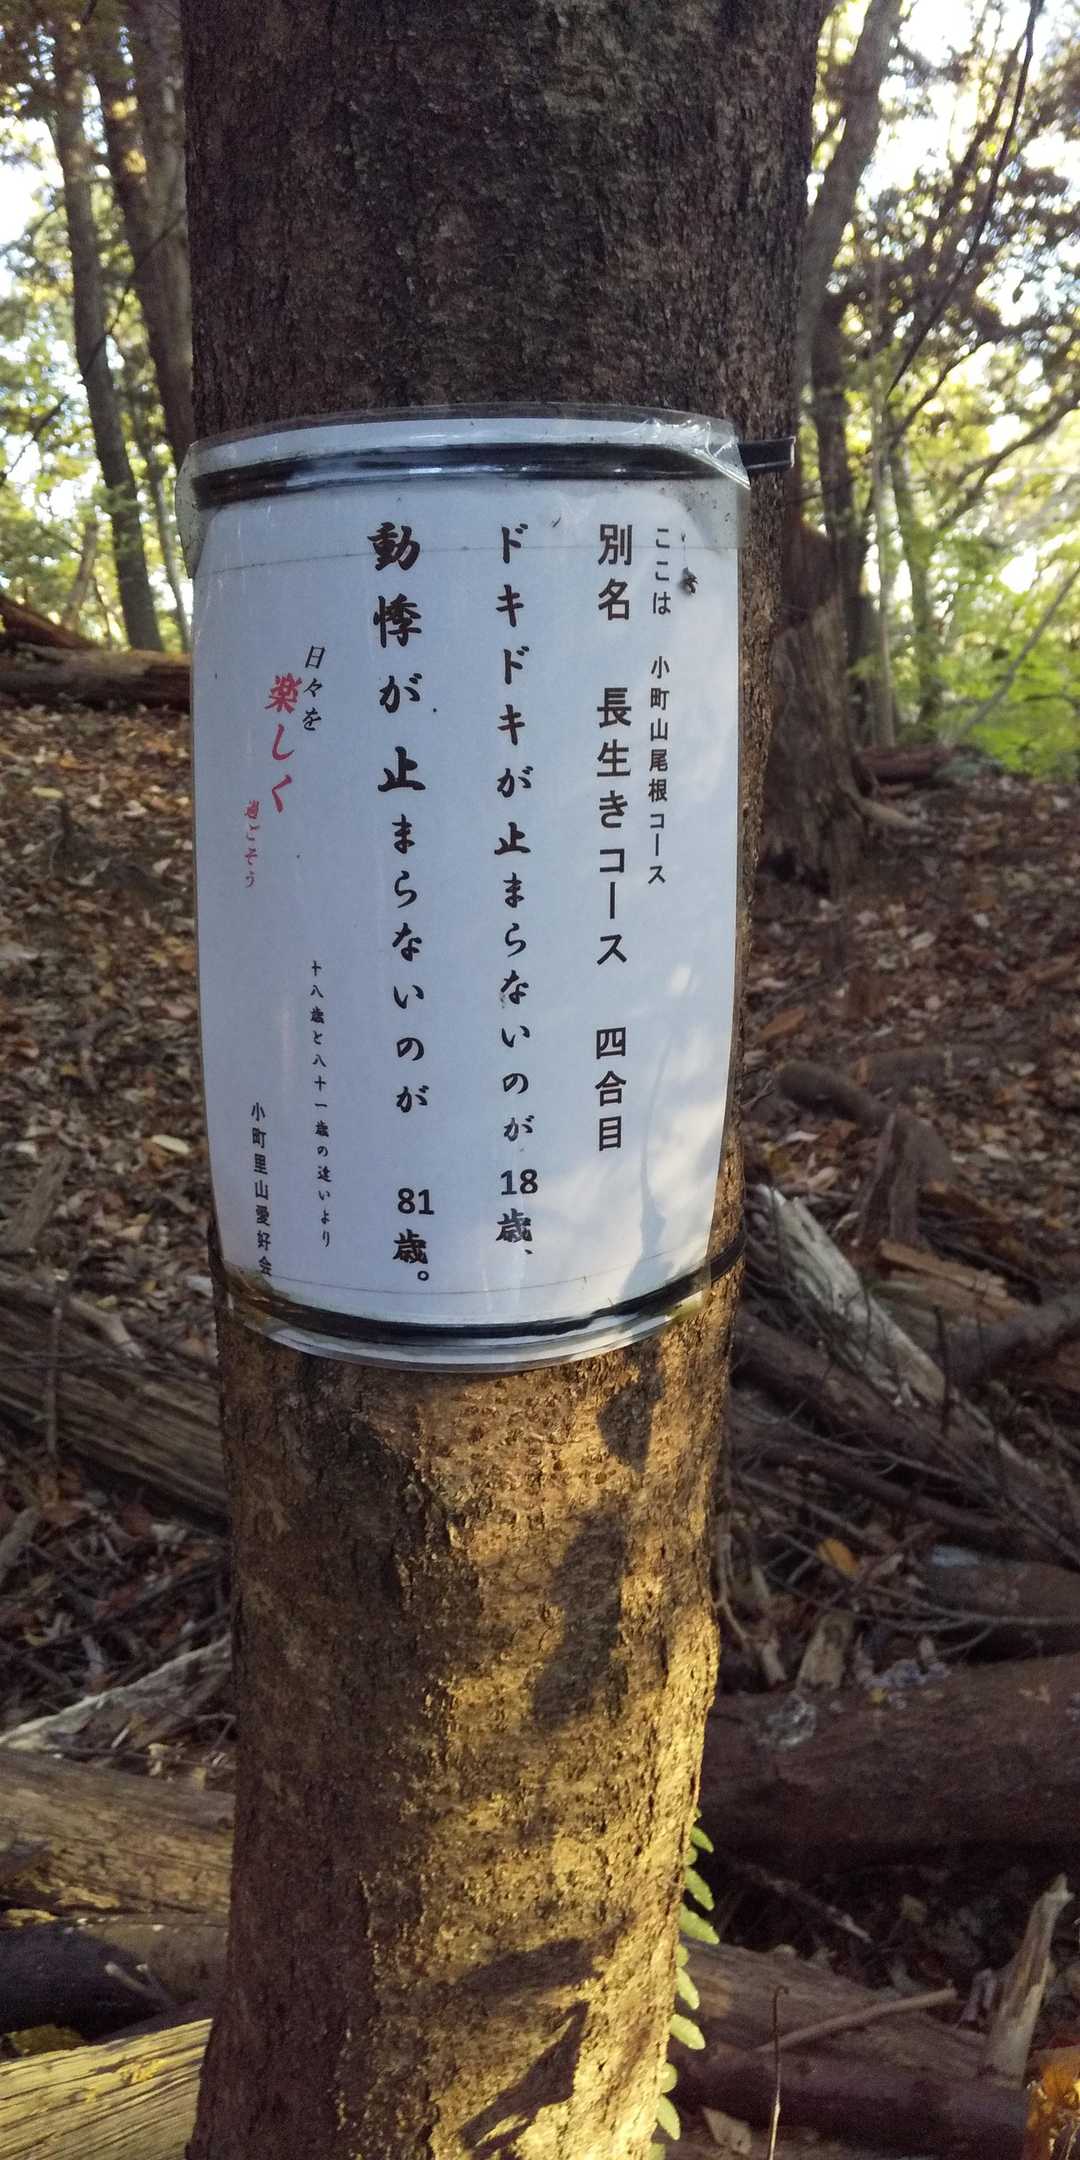 ここは 小町山尾根コース
別名 長生きコース 四合目
ドキドキが止まらないのが18歳、
動悸が止まらないのが 81歳。
十八歳と八十一歳の違いより
日々を
楽しく
過ごそう
小町里山愛好会